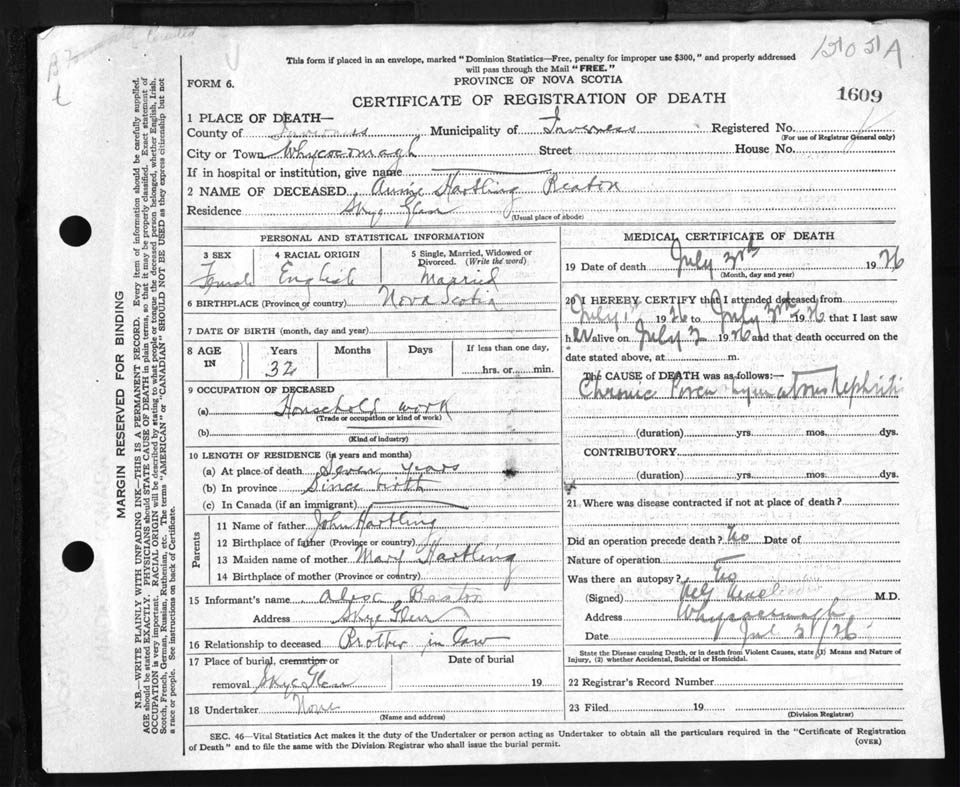 15051 A
This form if placed in an envelope, marked "Dominion Statistics—Free, penalty for improper use $300," and properly addressed
will pass through the Mail "FREE."
FORM 6.
PROVINCE OF NOVA SCOTIA
CERTIFICATE OF REGISTRATION OF DEATH
1609
1 PLACE OF DEATH—
County of Inverness Municipality of Inverness Registered No.
(For use of Registrar General only)
City or Town Whycocomagh Street House No.
If in hospital or institution, give name
2 NAME OF DECEASED Annie Hartling Beaton
Residence Skye Glen
(Usual place of abode)
PERSONAL AND STATISTICAL INFORMATION
3 SEX 4 RACIAL ORIGIN 5 Single, Married, Widowed or Divorced. (Write the word)
Female English Married
6 BIRTHPLACE (Province or country) Nova Scotia
7 DATE OF BIRTH (month, day and year)
8 AGE IN Years Months Days If less than one day,
32 hrs. or min.
9 OCCUPATION OF DECEASED
(a) Household work
(Trade or occupation or kind of work)
(b)
(Kind of industry)
10 LENGTH OF RESIDENCE (in years and months)
(a) At place of death Seven years
(b) In province Since birth
(c) In Canada (if an immigrant)
Parents
11 Name of father John Hartling
12 Birthplace of father (Province or country)
13 Maiden name of mother Mary Hartling
14 Birthplace of mother (Province or country)
15 Informant's name Beaton
Address Skye Glen
16 Relationship to deceased Brother in law
17 Place of burial, cremation or removal Skye Glen Date of burial 19
18 Undertaker None
(Name and address)
MEDICAL CERTIFICATE OF DEATH
19 Date of death July 3rd 1926
(Month, day and year)
20 I HEREBY CERTIFY that I attended deceased from
July 1st 1926 to July 3rd 1926 that I last saw
her alive on July 2 1926 and that death occurred on the
date stated above, at m.
The CAUSE of DEATH was as follows:—
Chronic Nephritis
(duration) yrs. mos. dys.
CONTRIBUTORY
(duration) yrs. mos. dys.
21 Where was disease contracted if not at place of death?
Did an operation precede death? No Date of
Nature of operation
Was there an autopsy? No
(Signed) M.D.
Address Whycocomagh
Date Jul 31/26
State the Disease causing Death, or in death from Violent Causes, state (1) Means and Nature of
Injury, (2) whether Accidental, Suicidal or Homicidal.
22 Registrar's Record Number
23 Filed 19
(Division Registrar)
SEC. 46—Vital Statistics Act makes it the duty of the Undertaker or person acting as Undertaker to obtain all the particulars required in the "Certificate of Registration
of Death" and to file the same with the Division Registrar who shall issue the burial permit.
(OVER)
MARGIN RESERVED FOR BINDING
N.B.—WRITE PLAINLY WITH UNFADING INK—THIS IS A PERMANENT RECORD. Every item of information should be carefully supplied.
AGE should be stated EXACTLY. PHYSICIANS should STATE CAUSE OF DEATH in plain terms, so that it may be properly classified. Exact statement of
OCCUPATION is very important. RACIAL ORIGIN will be described by stating to what people or tongue the deceased person belonged, whether English, Irish,
Scotch, French, German, Russian, Ruthenian, etc. The terms "AMERICAN" or "CANADIAN" SHOULD NOT BE USED as they express citizenship but not
a race or people. See instructions on back of Certificate.